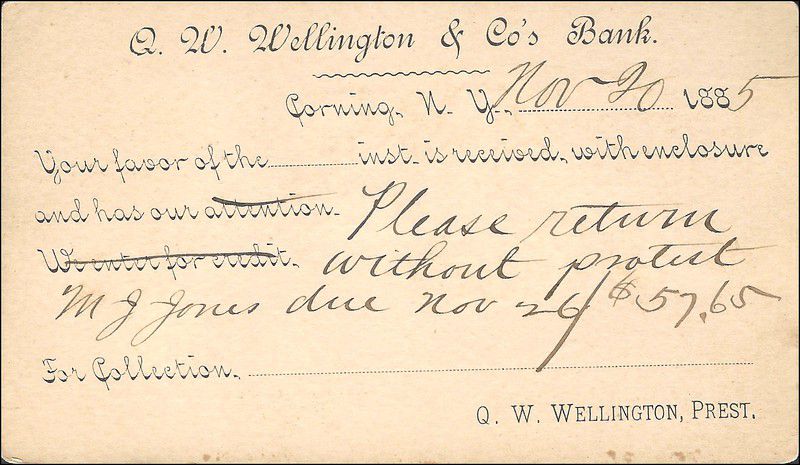 Q. W. Wellington & Co's Bank.
Corning, N. Y., Nov 20 1885
Your favor of the inst. is received, with enclosure
and has our attention. Please return
We enter for credit. without protest
M J Jones due Nov 26/ $57.65
For Collection,
Q. W. WELLINGTON, PREST.